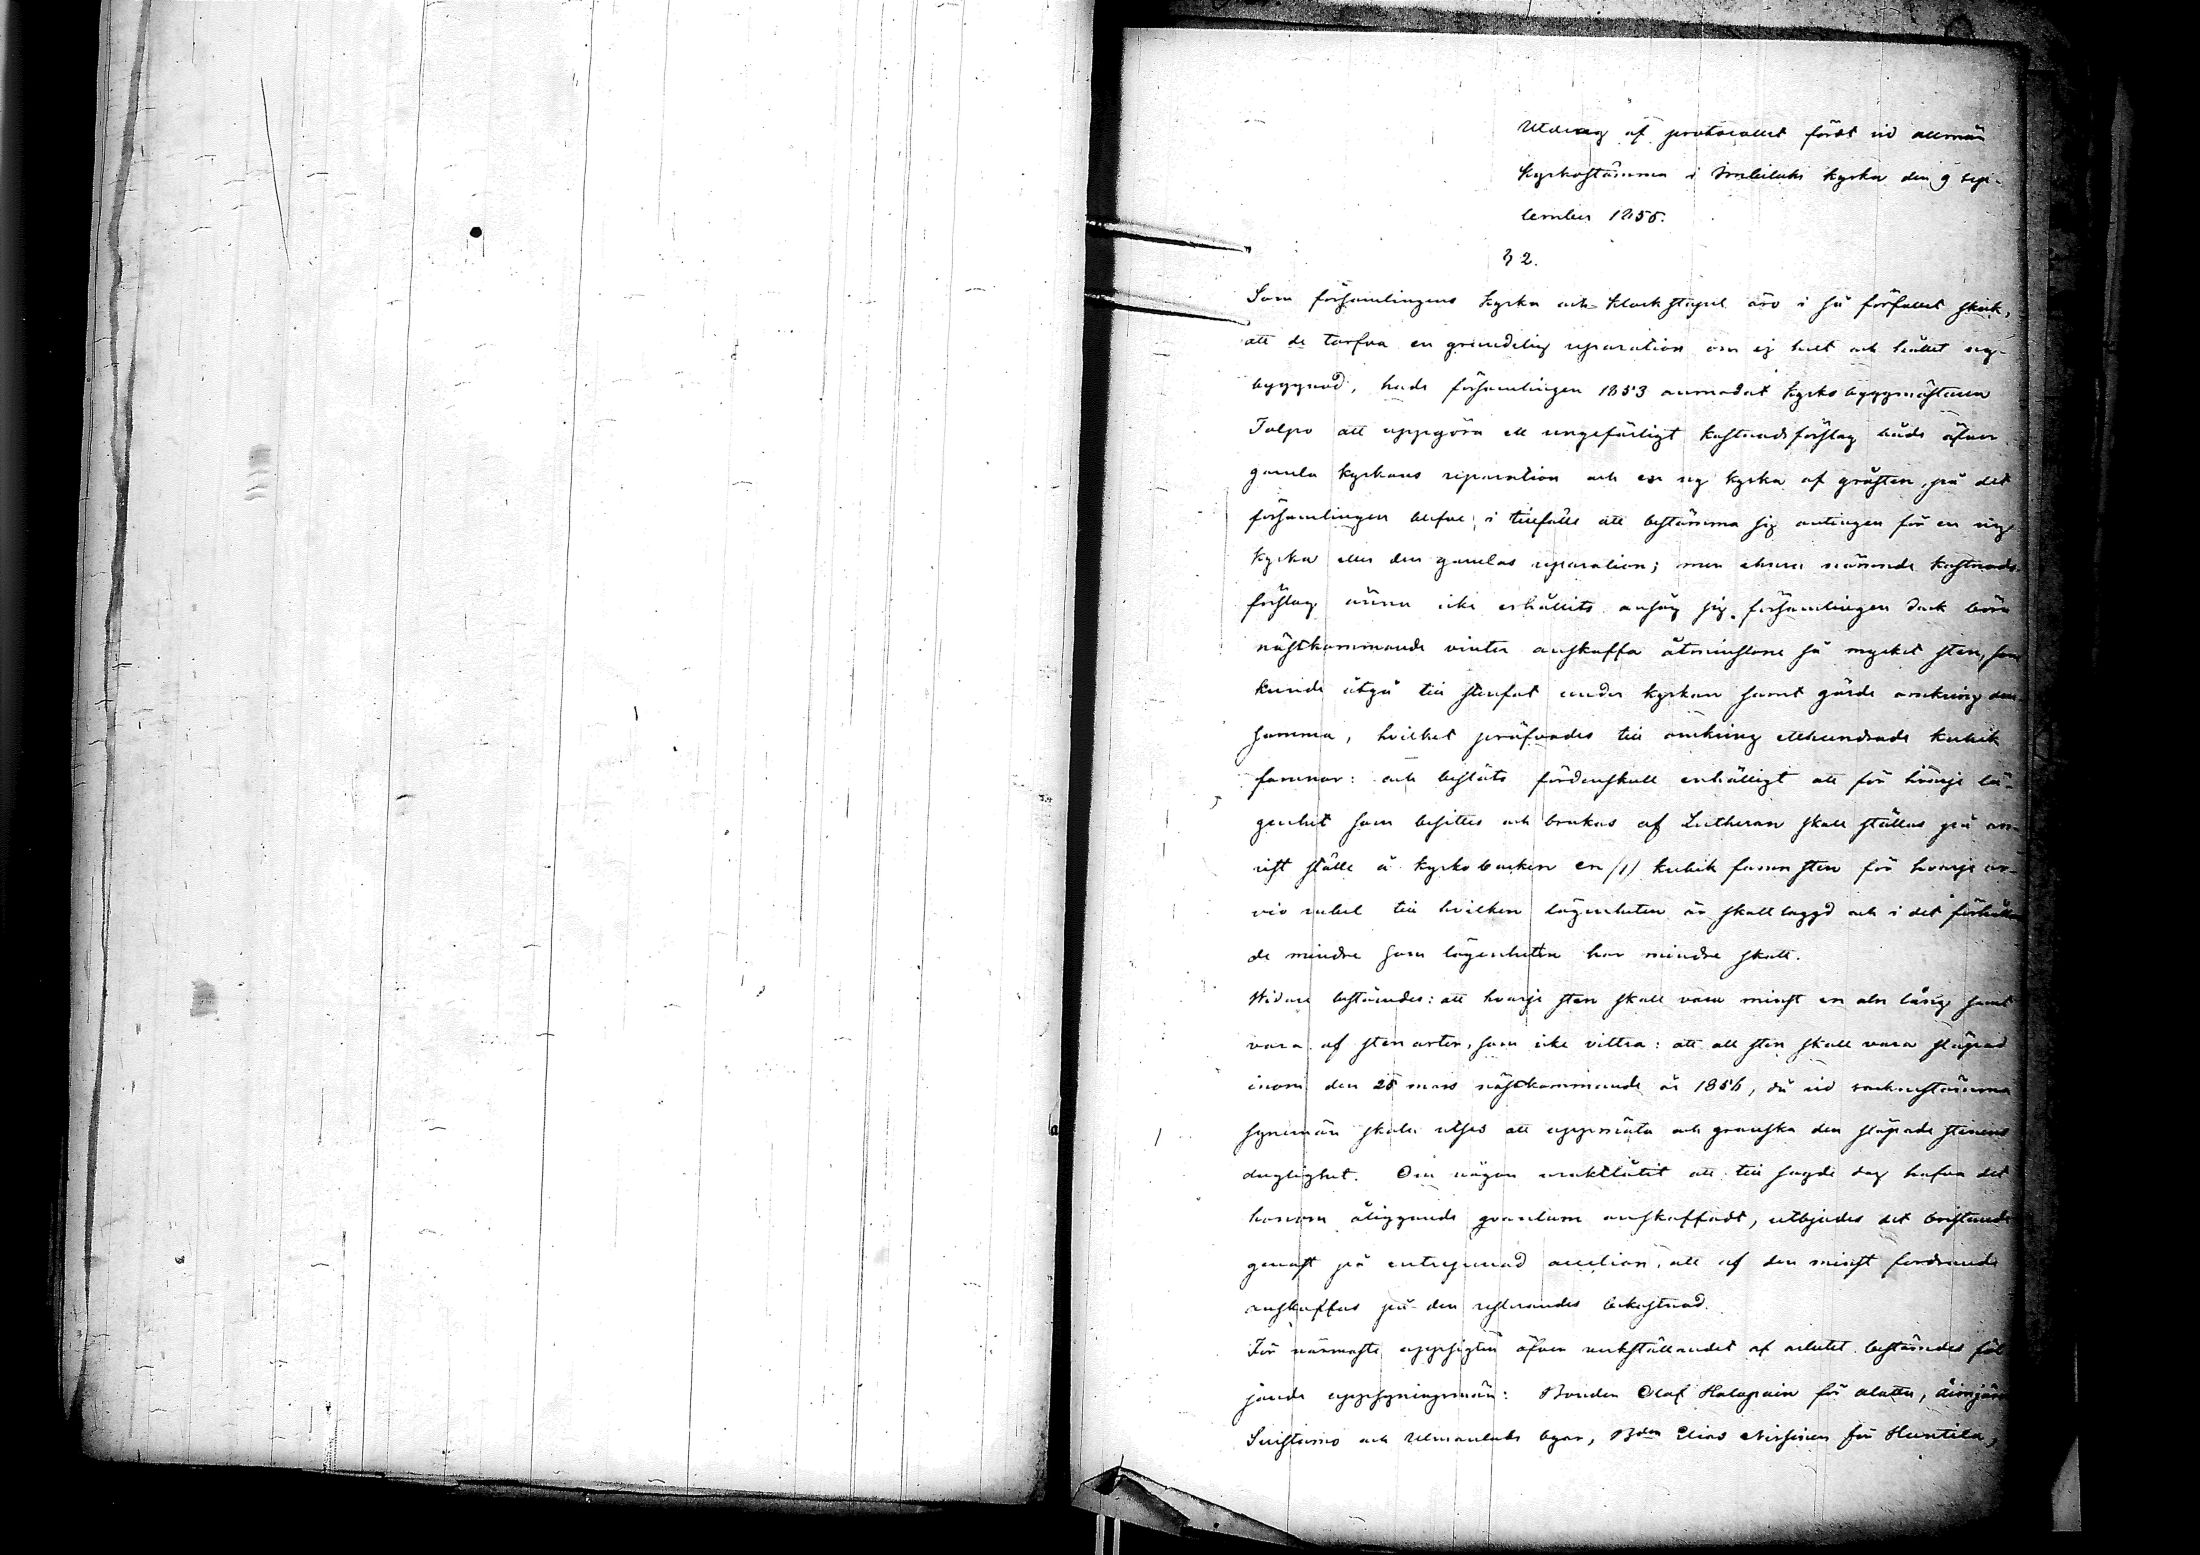 Utdrag af protocollet fördt vid allmän
Kyrkostämma i Imbilaks kyrka den 9 sep-
tember 1855.
§ 2.
Som församlingens kyrka och klockstapel äro i så förfallet skick,
att de tarfva en grundelig reparation om ej helt och hållet ny-
byggnad, hade församlingen 1853 anmodat kyrkobyggmästaren
Tolpo att uppgöra ett ungefärligt kostnadsförslag både öfver
gamla kyrkans reparation och en ny kyrka af gråsten, på det
församlingen blefve i tillfälle att bestämma sig antingen för en ny
kyrka eller den gamlas reparation; men ehuru nämnde kostnads
förslag ännu icke erhållits ansåg sig församlingen dock böra
nästkommande vinter anskaffa åtminstone så mycket sten, som
kunde åtgå till stenfot under kyrkan samt gärde omkring den
samma, hvilket pröfvades till omkring etthundrade kubik
famnar: och beslöts fördenskull enhälligt att för hvarje lä-
genhet som besittes och brukas af Lutheran skall ställas på an-
vist ställe å kyrkobacken en /1/ kubik famn sten för hvarje ar-
vio rubel till hvilken lägenheten är skattlaggd och i det förhållan
de mindre som lägenheten har mindre skatt.
Vidare bestämdes: att hvarje sten skall vara minst en aln lång samt
vara af sten arter, som icke vittra: att all sten skall vara släpad
inom den 25 mars nästkommande år 1856, då vid sockenstämma
synemän skola utses att uppmäta och granska den släpade stenens
duglighet. Om någon underlåtit att till sagde dag hafva det
honom åliggande quantum anskaffadt, utbjudes det bristande
genast på entreprenad auction, att af den minst fordrande
anskaffas på den resterandes bekostnad.
För närmaste uppsigten öfver verkställandet af arbetet bestämdes föl
jande uppsyningsmän: Bonden Olof Halapain för Alattu,
Suistamo och Uimanlaks byar, Bden Elias Nissinen för Huntila,